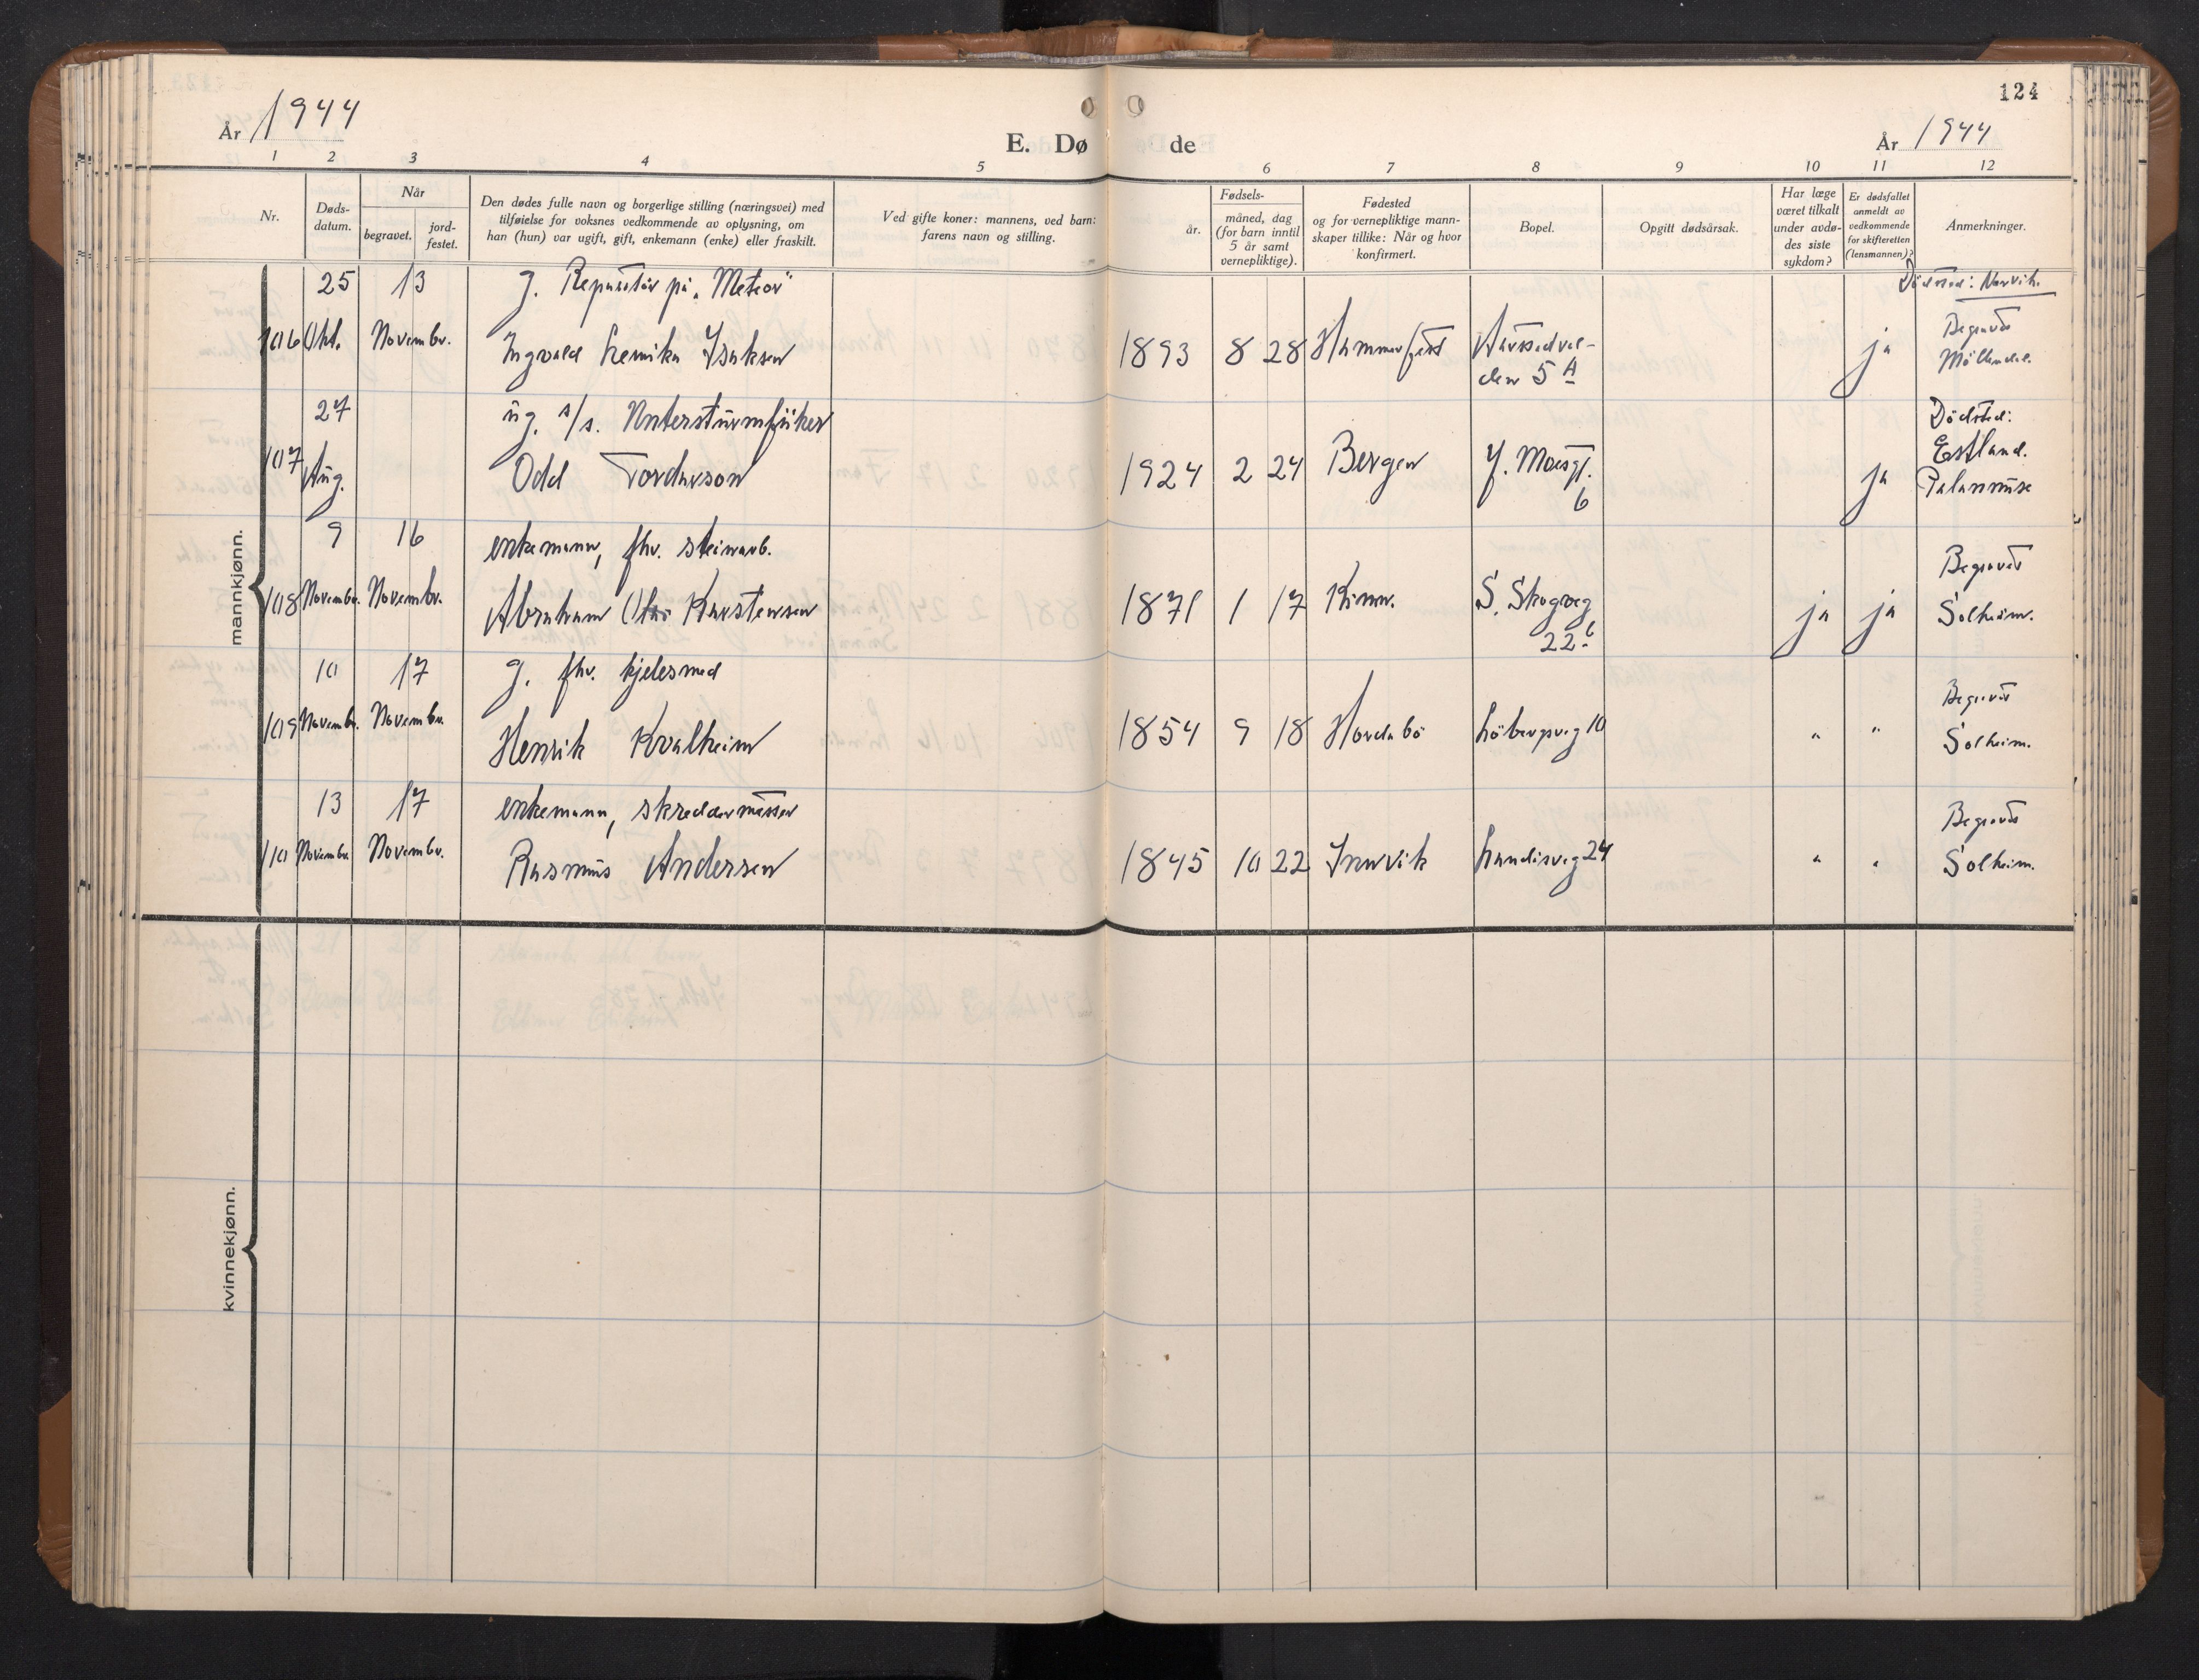 124
År 1944
E. Døde
År 1944
1 2 3 4 5 6 7 8 9 10 11 12
Nr.
Døds-
datum.
Når
begravet.
jord-
festet.
Den dødes fulle navn og borgerlige stilling (næringsvei) med
tilføielse for voksnes vedkommende av oplysning, om
han (hun) var ugift, gift, enkemann (enke) eller fraskilt.
Ved gifte koner: mannens, ved barn:
farens navn og stilling.
Fødsels-
år.
måned, dag
(for barn inntil
5 år samt
vernepliktige).
Fødested
og for vernepliktige mann-
skaper tillike: Når og hvor
konfirmert.
Bopel.
Opgitt dødsårsak.
Har læge
været tilkalt
under avdø-
des siste
sykdom?
Er dødsfallet
anmeldt av
vedkommende
for skifteretten
(lensmannen)?
Anmerkninger.
mannkjønn.
25 13 g. Reparatör på "Meteor" Dödsted: Narvik.
106 Okt. Novembr. Ingvald Isaksen 1893 8 28 Hammerfest ja Begravet
5 A Möllendal.
27 ug. s/s. Untersturmfüher Dödsted:
107 Aug. Odd Tordarson 1924 2 24 Bergen Y. ja Estland.
6 Palanmuse
9 16 enkemann, fhv. steinarb. Begravet
108 Novembr. Novembr. Abraham Karstensen 1871 1 17 Kinn. S. Skogveg ja ja Solheim.
22 b
10 17 g. fhv. kjelesmed Begravet
109 Novembr. Novembr. Henrik Kvalheim 1854 9 18 Hordabö Löbergsveg 10 " " Solheim.
13 17 enkemann, skreddermester Begravet
110 Novembr. Novembr. Rasmus Andersen 1845 10 22 Innvik 24 " " Solheim.
kvinnekjønn.